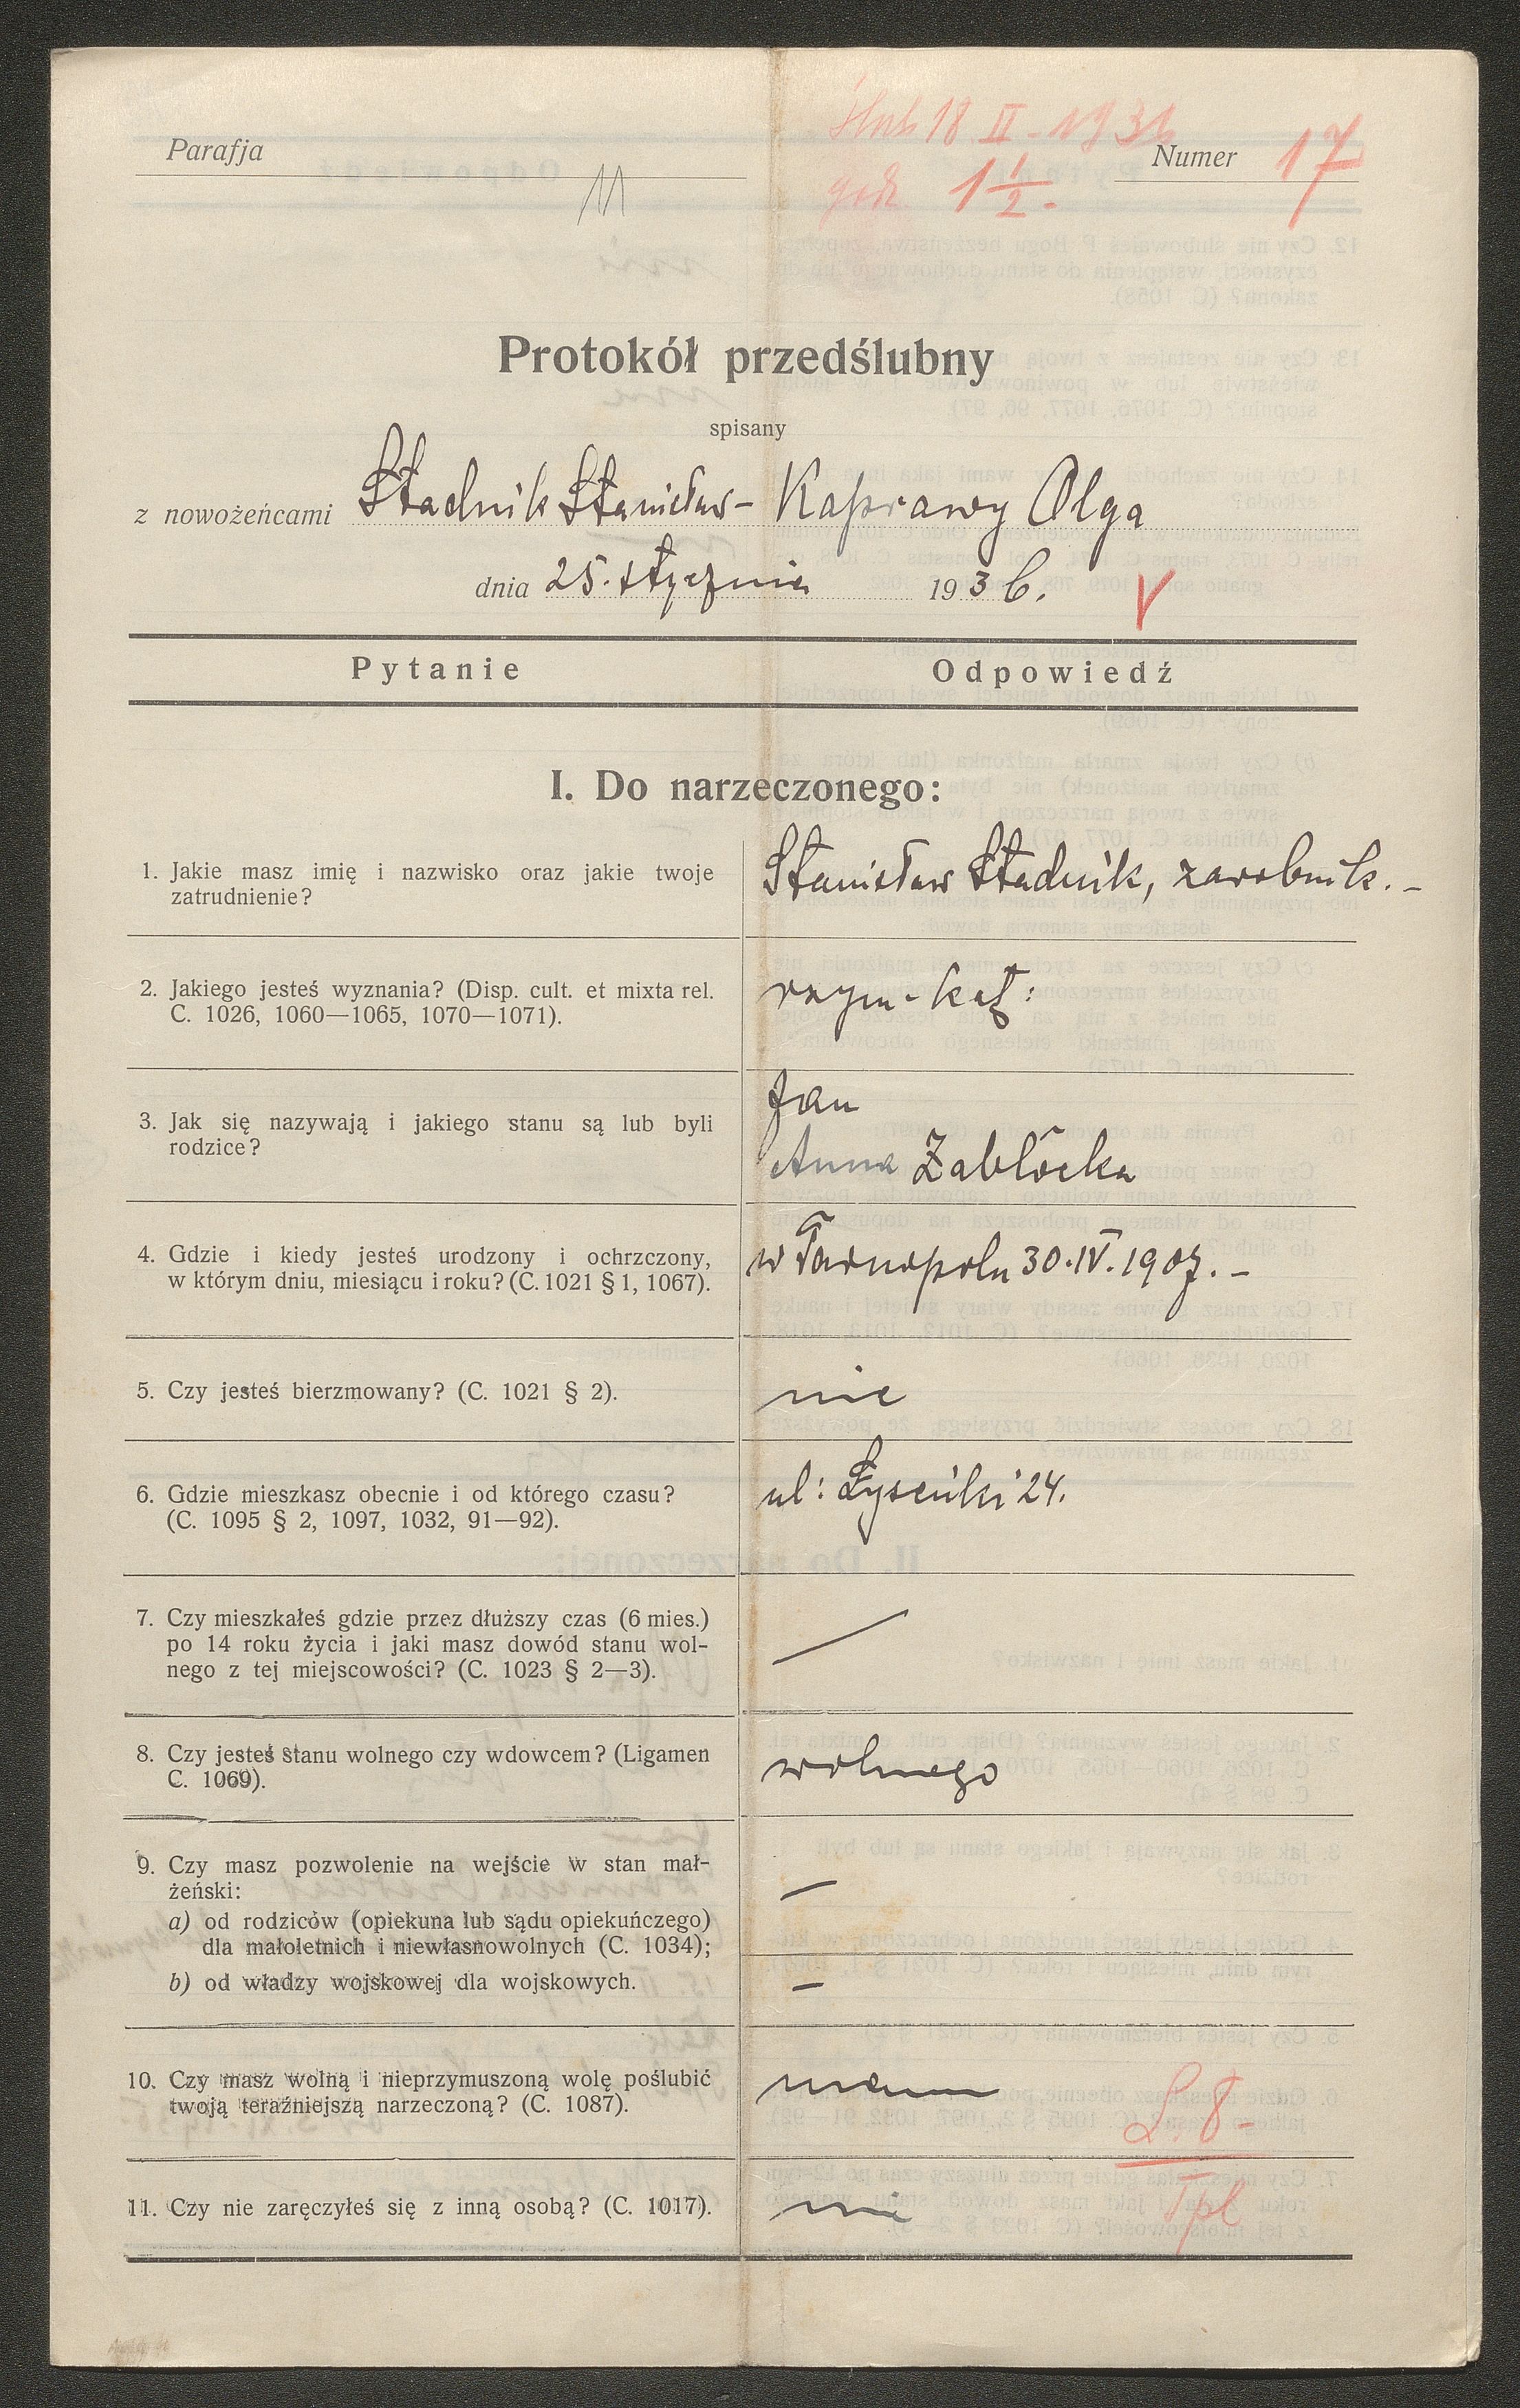 Ślub 18 II - 1936
Parafja
Numer 17
godz 1 1/2 -
11
Protokół przedślubny
spisany
z nowożeńcami Stadnik Stanisław - Kaprawy Olga
dnia 25. stycznia 1936.
Pytanie
Odpowiedź
I. Do narzeczonego:
1. Jakie masz imię i nazwisko oraz jakie twoje
zatrudnienie?
Stanisław Stadnik, zarobnik. -
2. Jakiego jesteś wyznania? (Disp. cult. et mixta rel.
C. 1026, 1060—1065, 1070—1071).
rzym-kat:
3. Jak się nazywają i jakiego stanu są lub byli
rodzice?
Jan
Anna Zabłocka
4. Gdzie i kiedy jesteś urodzony i ochrzczony,
w którym dniu, miesiącu i roku? (C. 1021 § 1, 1067).
w Tarnopolu 30.IV.1907. -
5. Czy jesteś bierzmowany? (C. 1021 § 2).
nie
6. Gdzie mieszkasz obecnie i od którego czasu?
(C. 1095 § 2, 1097, 1032, 91—92).
ul: 24.
7. Czy mieszkałeś gdzie przez dłuższy czas (6 mies.)
po 14 roku życia i jaki masz dowód stanu wol-
nego z tej miejscowości? (C. 1023 § 2—3).
8. Czy jesteś stanu wolnego czy wdowcem? (Ligamen
C. 1069).
wolnego
9. Czy masz pozwolenie na wejście w stan mał-
żeński:
—
a) od rodziców (opiekuna lub sądu opiekuńczego)
dla małoletnich i niewłasnowolnych (C. 1034);
b) od władzy wojskowej dla wojskowych.
—
10. Czy masz wolną i nieprzymuszoną wolę poślubić
twoją teraźniejszą narzeczoną? (C. 1087).
mam
L. 8 -
11. Czy nie zaręczyłeś się z inną osobą? (C. 1017).
nie
Tpl